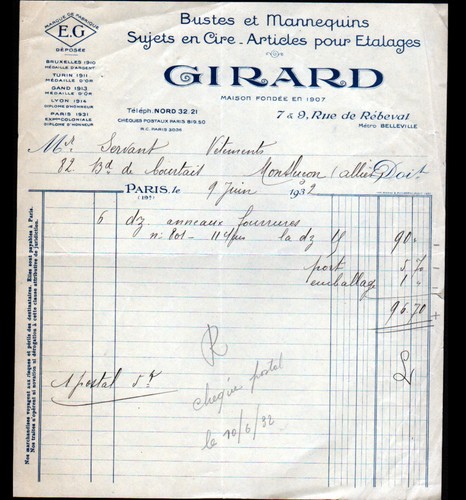 MARQUE DE FABRIQUE
E.G
DÉPOSÉE
BRUXELLES 1910
MÉDAILLE D'ARGENT
TURIN 1911
MÉDAILLE D'OR
GAND 1913
MÉDAILLE D'OR
LYON 1914
DIPLOME D'HONNEUR
PARIS 1931
EXPon COLONIALE
DIPLOME D'HONNEUR
Bustes et Mannequins
Sujets en Cire _ Articles pour Etalages
GIRARD
MAISON FONDÉE EN 1907
Téléph. NORD 32.21
CHÈQUES POSTAUX PARIS
R.C. PARIS
7 & 9, Rue de Rébeval
Métro BELLEVILLE
Mr Servant Vetements
82. Bd de Courtais Montlucon (allier) Doit
PARIS, le 9 Juin 1932
(19e)
6 dz anneaux fourrures
n: 801 - la dz 15 90 "
port 5.70
emballage 1 "
96.70
1 postal 5 K
cheque postal
le 10/6/32
Nos marchandises voyagent aux risques et périls des destinataires. Elles sont payables à Paris.
Nos traites n'opèrent ni novation ni dérogation à cette clause attributive de juridiction.